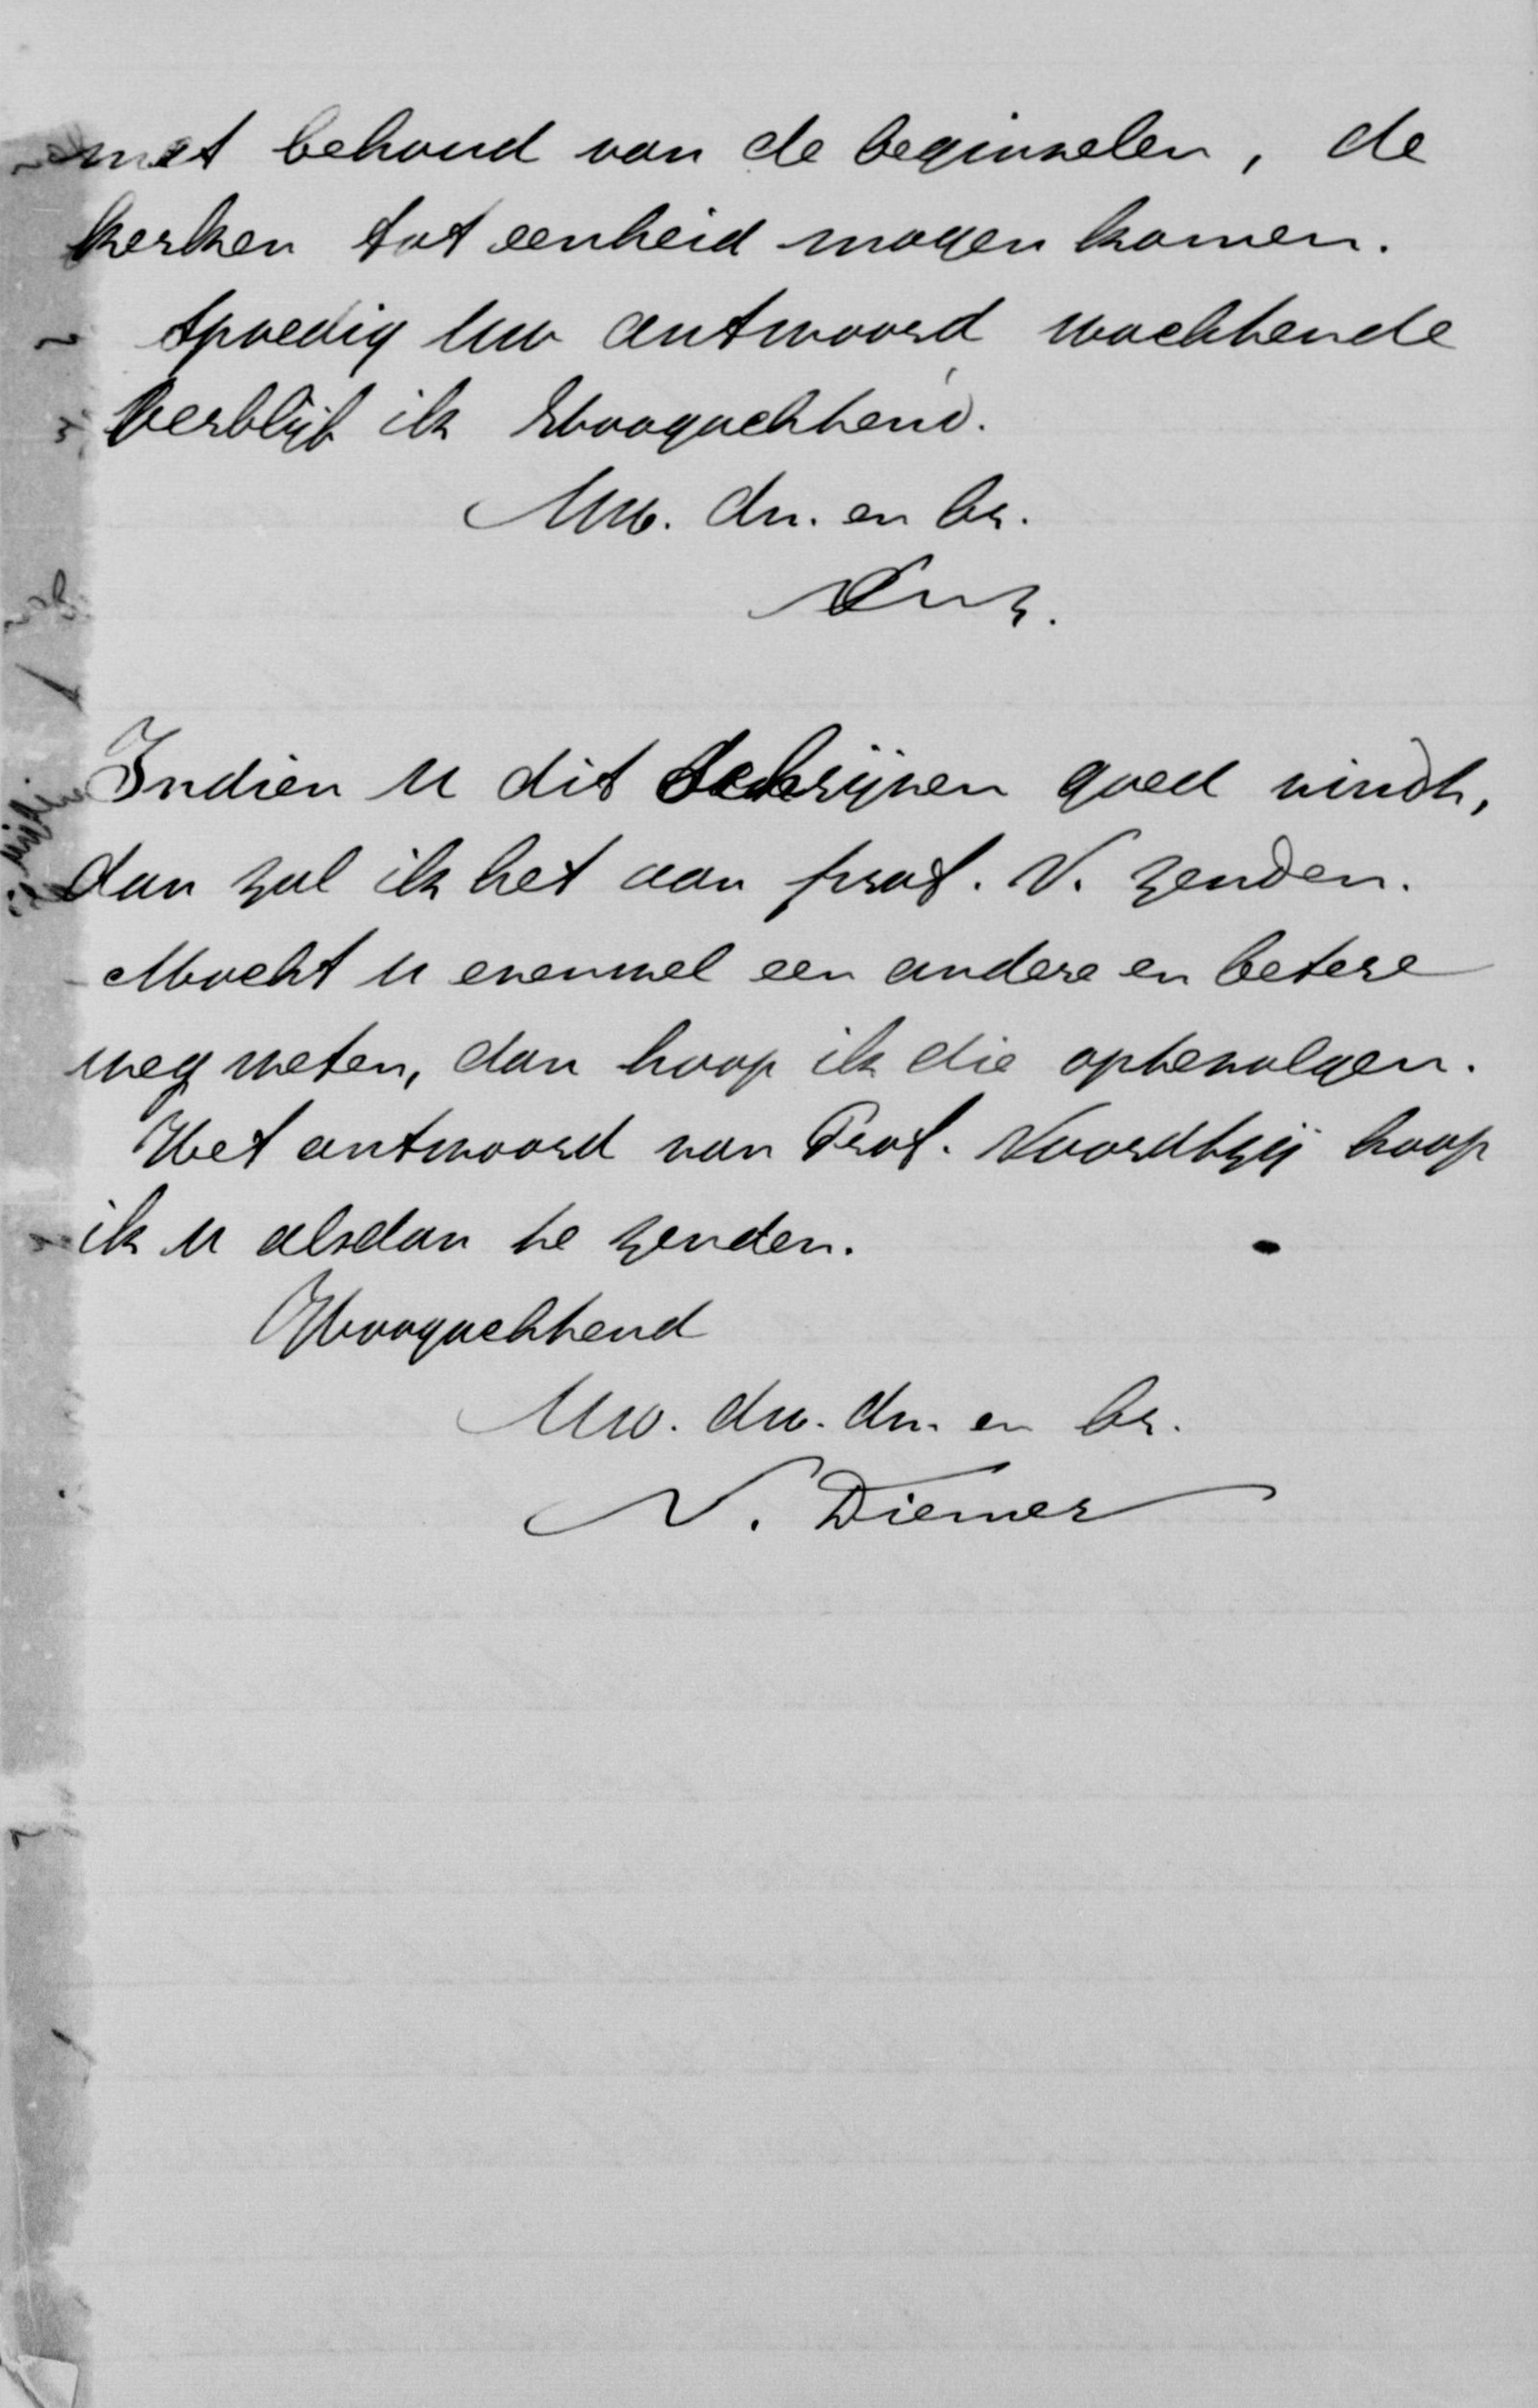 met behoud van de beginselen, de
kerken tot eenheid mogen komen.
Spoedig Uw antwoord wachtende
verblijf ik Hoogachtend.
Uw. dn. en br.
Indien U dit schrijven goed vindt,
dan zal ik het aan prof. N. zenden.
Mocht U evenwel een andere en betere
weg weten, dan hoop ik die optevolgen.
Het antwoord van Prof. Noordtzij hoop
ik U alsdan te zenden.
Hoogachtend
Uw. dw. dn. en br.
N. Diemer